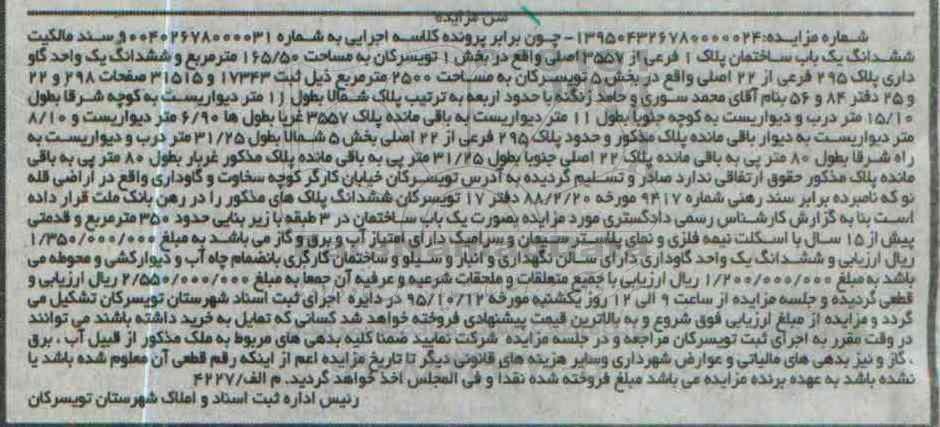 متن مزایده
شماره مزایده:۱۳۹۵۰۴۳۲۶۷۸۰۰۰۰۰۲۴- چون برابر پرونده کلاسه اجرایی به شماره ۰۰۴۰۲۶۷۸۰۰۰۰۳۱ سند مالکیت
ششدانگ یک باب ساختمان پلاک ۱ فرعی از ۳۵۵۷ اصلی واقع در بخش ۱ تویسرکان به مساحت ۱۶۵/۵۰ مترمربع و ششدانگ یک واحد گاو
داری پلاک ۲۹۵ فرعی از ۲۲ اصلی واقع در بخش ۵ تویسرکان به مساحت ۲۵۰۰ مترمربع ذیل ثبت ۱۷۳۴۳ و ۳۱۵۱۵ صفحات ۲۹۸ و ۲۲
و ۲۵ دفتر ۸۴ و ۵۶ بنام آقای محمد سوری و حامد زنگنه با حدود اربعه به ترتیب پلاک شمالا بطول ۱۱ متر دیواریست به کوچه شرقا بطول
۱۵/۱۰ متر درب و دیواریست به کوچه جنوبا بطول ۱۱ متر دیواریست به باقی مانده پلاک ۳۵۵۷ غربا بطول ها ۶/۹۰ متر دیواریست و ۸/۱۰
متر دیواریست به دیوار باقی مانده پلاک مذکور و حدود پلاک ۲۹۵ فرعی از ۲۲ اصلی بخش ۵ شمالا بطول ۳۱/۲۵ متر درب و دیواریست به
راه شرقا بطول ۸۰ متر پی به باقی مانده پلاک ۲۲ اصلی جنوبا بطول ۳۱/۲۵ متر پی به باقی مانده پلاک مذکور غربار بطول ۸۰ متر پی به باقی
مانده پلاک مذکور حقوق ارتفاقی ندارد صادر و تسلیم گردیده به آدرس تویسرکان خیابان کارگر کوچه سخاوت و گاوداری واقع در اراضی قله
نو که نامبرده برابر سند رهنی شماره ۹۴۱۷ مورخه ۸۸/۲/۲۰ دفتر ۱۷ تویسرکان ششدانگ پلاک های مذکور را در رهن بانک ملت قرار داده
است بنا به گزارش کارشناس رسمی دادگستری مورد مزایده بصورت یک باب ساختمان در ۳ طبقه با زیر بنایی حدود ۳۵۰ مترمربع و قدمتی
پیش از ۱۵ سال با اسکلت نیمه فلزی و نمای پلاستر سیمان و سرامیک دارای امتیاز آب و برق و گاز می باشد به مبلغ ۱/۳۵۰/۰۰۰/۰۰۰
ریال ارزیابی و ششدانگ یک واحد گاوداری دارای سالن نگهداری و انبار و سیلو و ساختمان کارگری بانضمام چاه آب و دیوارکشی و محوطه می
باشد به مبلغ ۱/۲۰۰/۰۰۰/۰۰۰ ریال ارزیابی با جمیع متعلقات و ملحقات شرعیه و عرفیه آن جمعا به مبلغ ۲/۵۵۰/۰۰۰/۰۰۰ ریال ارزیابی و
قطعی گردیده و جلسه مزایده از ساعت ۹ الی ۱۲ روز یکشنبه مورخه ۹۵/۱۰/۱۲ در دایره اجرای ثبت اسناد شهرستان تویسرکان تشکیل می
گردد و مزایده از مبلغ ارزیابی فوق شروع و به بالاترین قیمت پیشنهادی فروخته خواهد شد کسانی که تمایل به خرید داشته باشند می توانند
در وقت مقرر به اجرای ثبت تویسرکان مراجعه و در جلسه مزایده شرکت نمایید ضمنا کلیه بدهی های مربوط به ملک مذکور از قبیل آب ، برق
، گاز و نیز بدهی های مالیاتی و عوارض شهرداری وسایر هزینه های قانونی دیگر تا تاریخ مزایده اعم از اینکه رقم قطعی آن معلوم شده باشد یا
نشده باشد به عهده برنده مزایده می باشد مبلغ فروخته شده نقدا و فی المجلس اخذ خواهد گردید. م الف/۴۲۲۷
رئیس اداره ثبت اسناد و املاک شهرستان تویسرکان